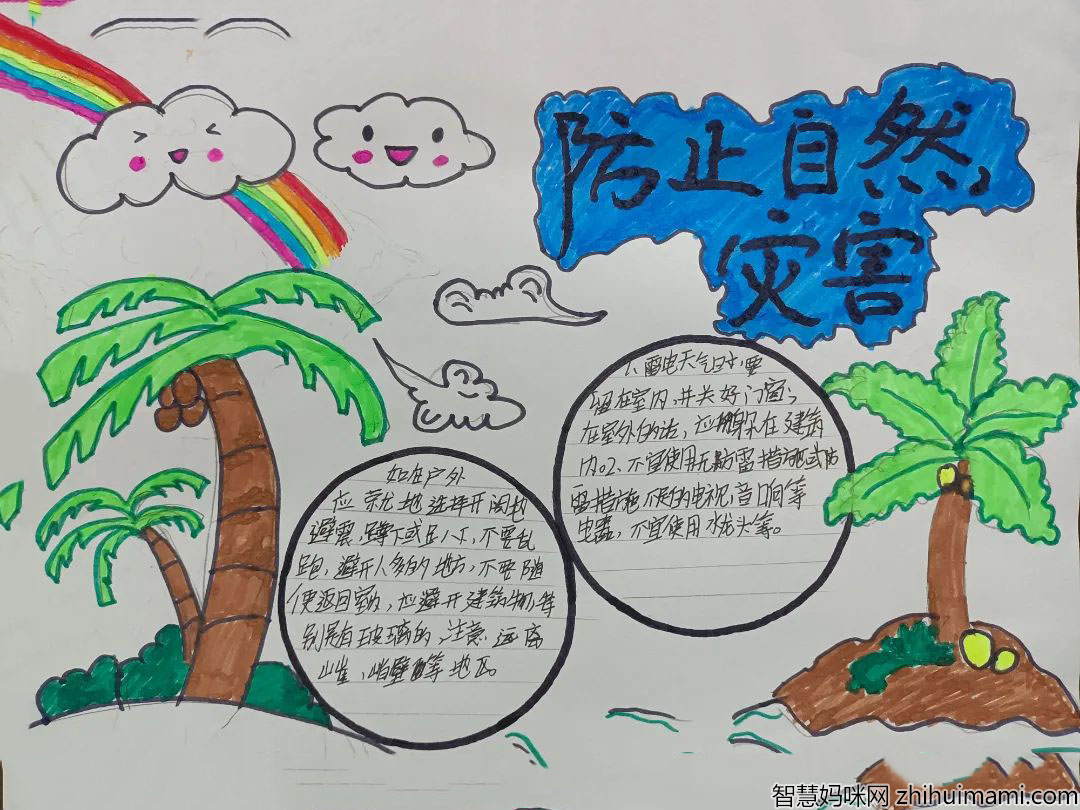 防止自然
灾害
1、雷电天气时要
留在室内,并关好门窗;
在室外的话,应躲在建筑
内。2、不宜使用无防雷措施或防
雷措施不足的电视,音响等
电器,不宜使用水龙头等。
如在户外
应就地选择开阔地
避震,蹲下或趴下,不要乱
跑,避开人多的地方,不要随
便返回室内,应避开建筑物,特
别是有玻璃的,注意远离
山崖,峭壁等地区。
智慧妈咪网 zhihuimami.com